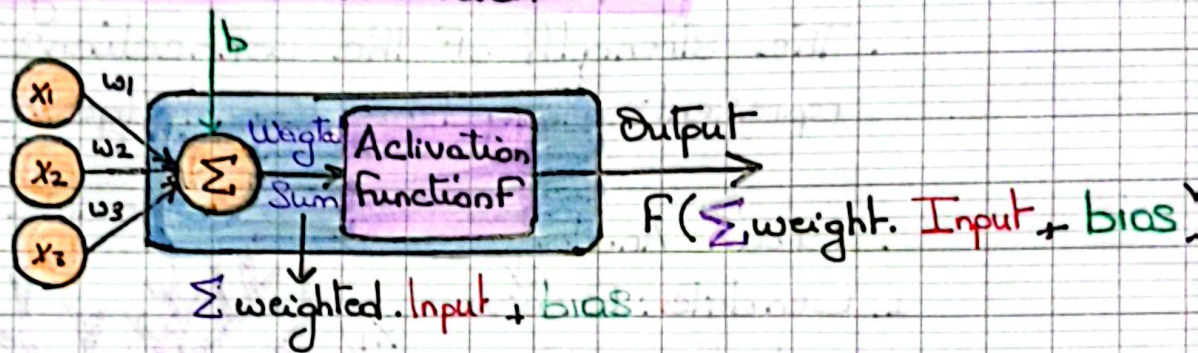 b
x1
w1
x2
w2
x3
w3
Σ
Weigta
Sum
Activation
functionF
Output
F(Σweight. Input + bias)
Σ weighted. Input + bias